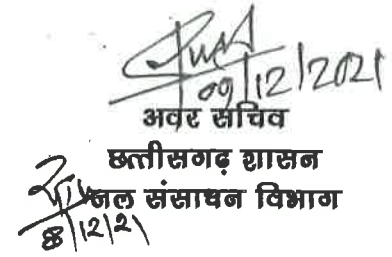 09/12/2021
अवर सचिव
छत्तीसगढ़ शासन
जल संसाधन विभाग
8/12/21